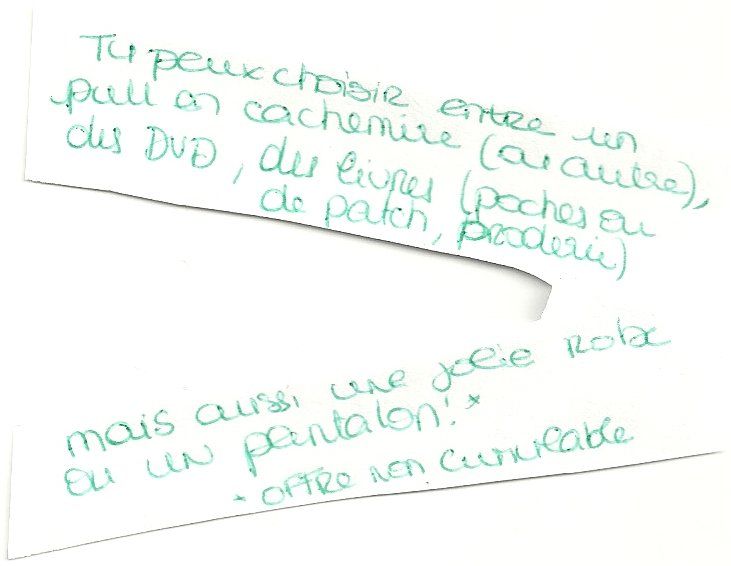 Tu peux choisir entre un
pull en cachemire (ou autre),
des DVD, des livres (poches ou
de patch, broderie)
mais aussi une jolie robe
ou un pantalon!*
* offre non cumulable